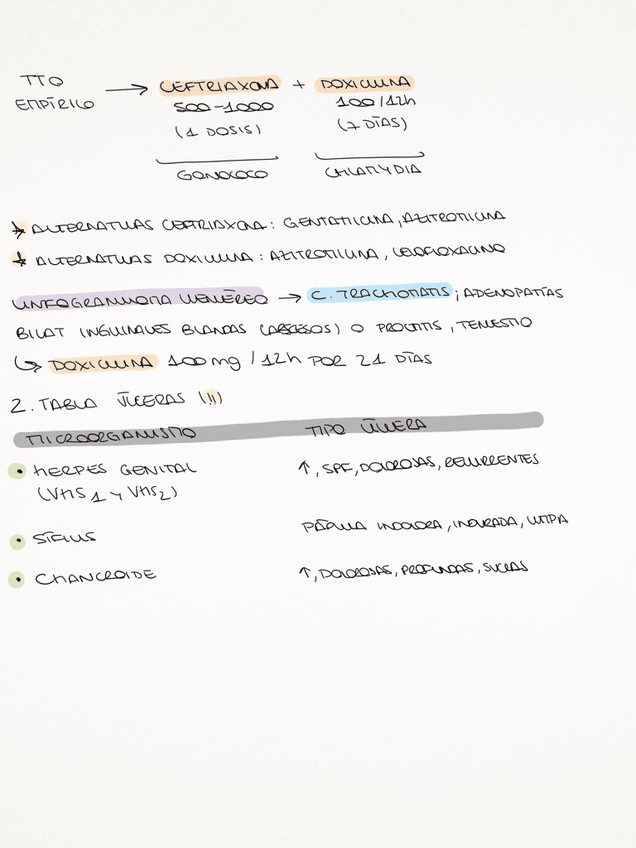 TTO EMPÍRICO → CEFTRIAXONA + DOXICICLINA
500-1000 100/12h
(1 DOSIS) (7 DÍAS)
GONOCOCO CHLAMYDIA
* ALTERNATIVAS CEFTRIAXONA: GENTAMICINA, AZITROMICINA
* ALTERNATIVAS DOXICICLINA: AZITROMICINA, LEVOFLOXACINO
LINFOGRANULOMA VENÉREO → C. TRACHOMATIS; ADENOPATÍAS
BILAT INGUINALES BLANDAS (ABSCESOS) O PROCTITIS, TENESMO
↳ DOXICICLINA 100mg / 12h POR 21 DÍAS
2. TABLA ÚLCERAS (!!)
MICROORGANISMO TIPO ÚLCERA
• HERPES GENITAL ↑, SPF, DOLOROSAS, RECURRENTES
(VHS 1 Y VHS2)
• SÍFILIS PÁPULA INDOLORA, INDURADA, LIMPIA
• CHANCROIDE ↑, DOLOROSAS, PROFUNDAS, SUCIAS